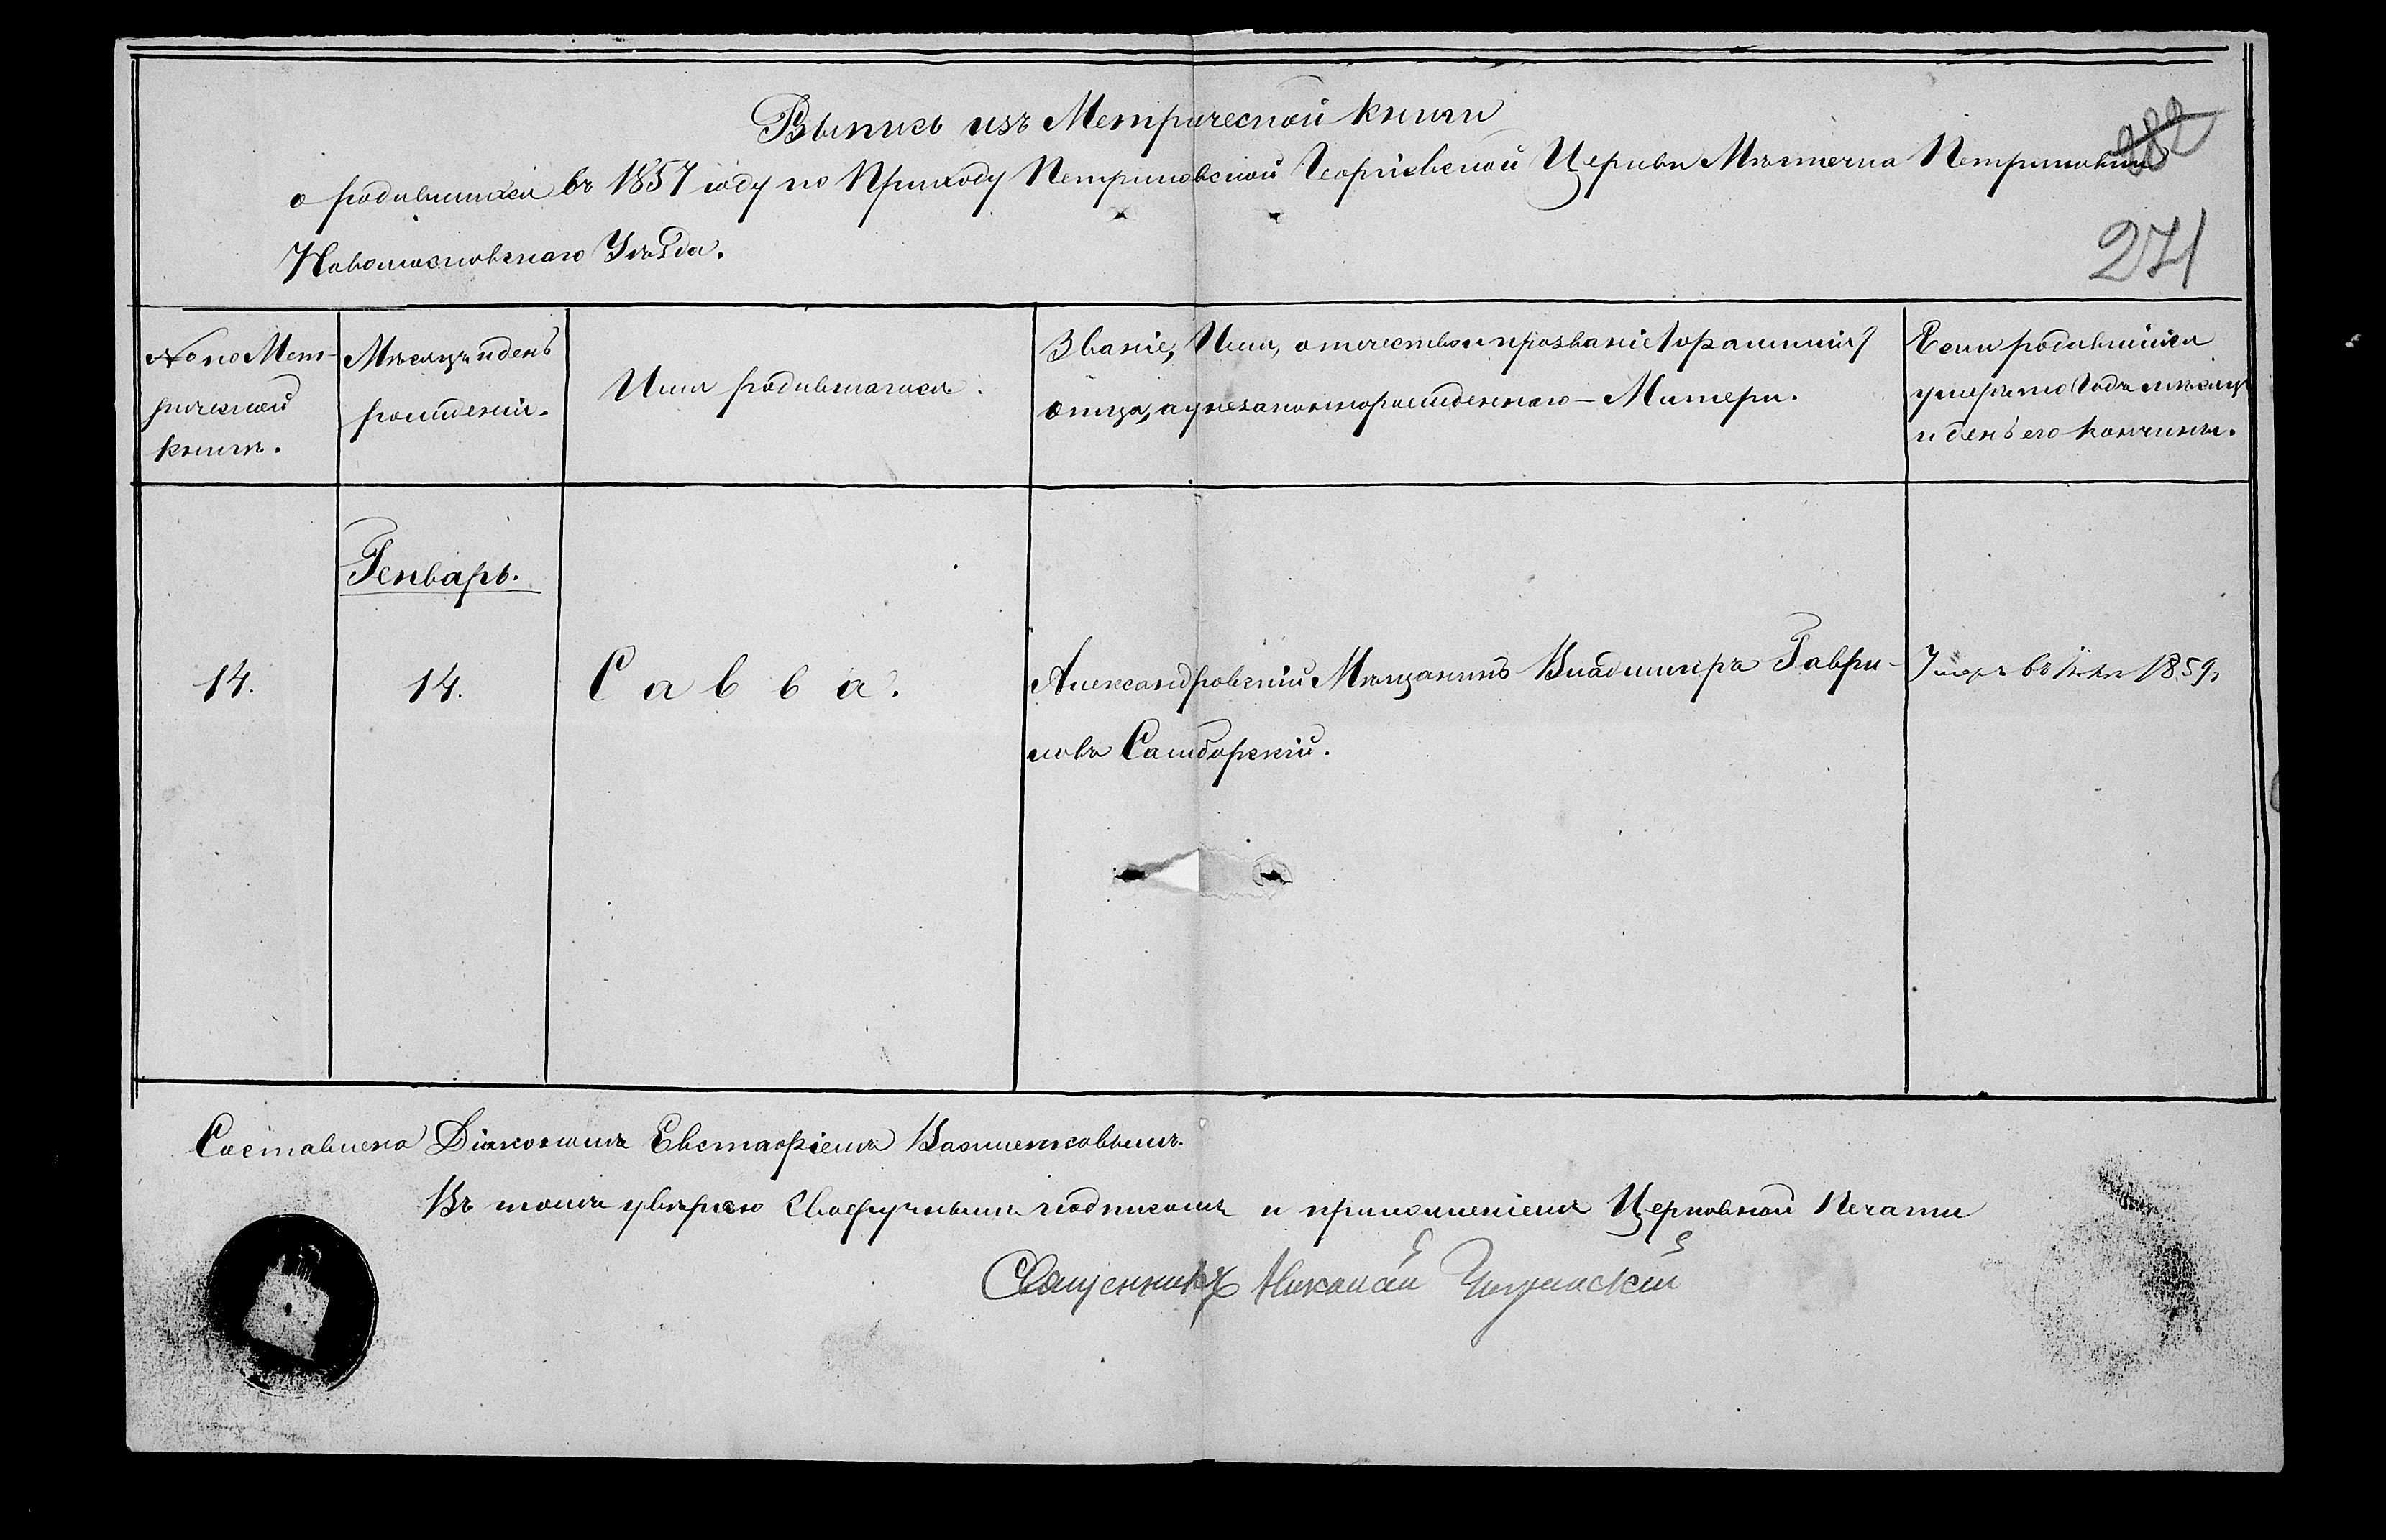 Выпись изъ Метрической книги
282
о родившихся въ 1857 году по Приходу Петриковской Георгіевской Церкви Мѣстечка Петриковки
Новомосковскаго Уѣзда.
271
№ по Мет-
рической
книгѣ.
Мѣсяцъ и день
рожденія.
Имя родившагося.
Званіе, Имя, отчество и прозваніе /фамилія/
отца, а у незаконнорожденнаго – Матери.
Если родившійся
умеръ то годъ мѣсяцъ
и день его кончины.
Генварь.
14.
14.
Савва.
Александровскій Мѣщанинъ Владиміръ Гаври-
ловъ Самборскій.
Умеръ въ 1859
Составлена Діакономъ Евстафіемъ
Въ томъ увѣряю своеручнымъ подписомъ и приложеніемъ Церковной Печати
Священникъ